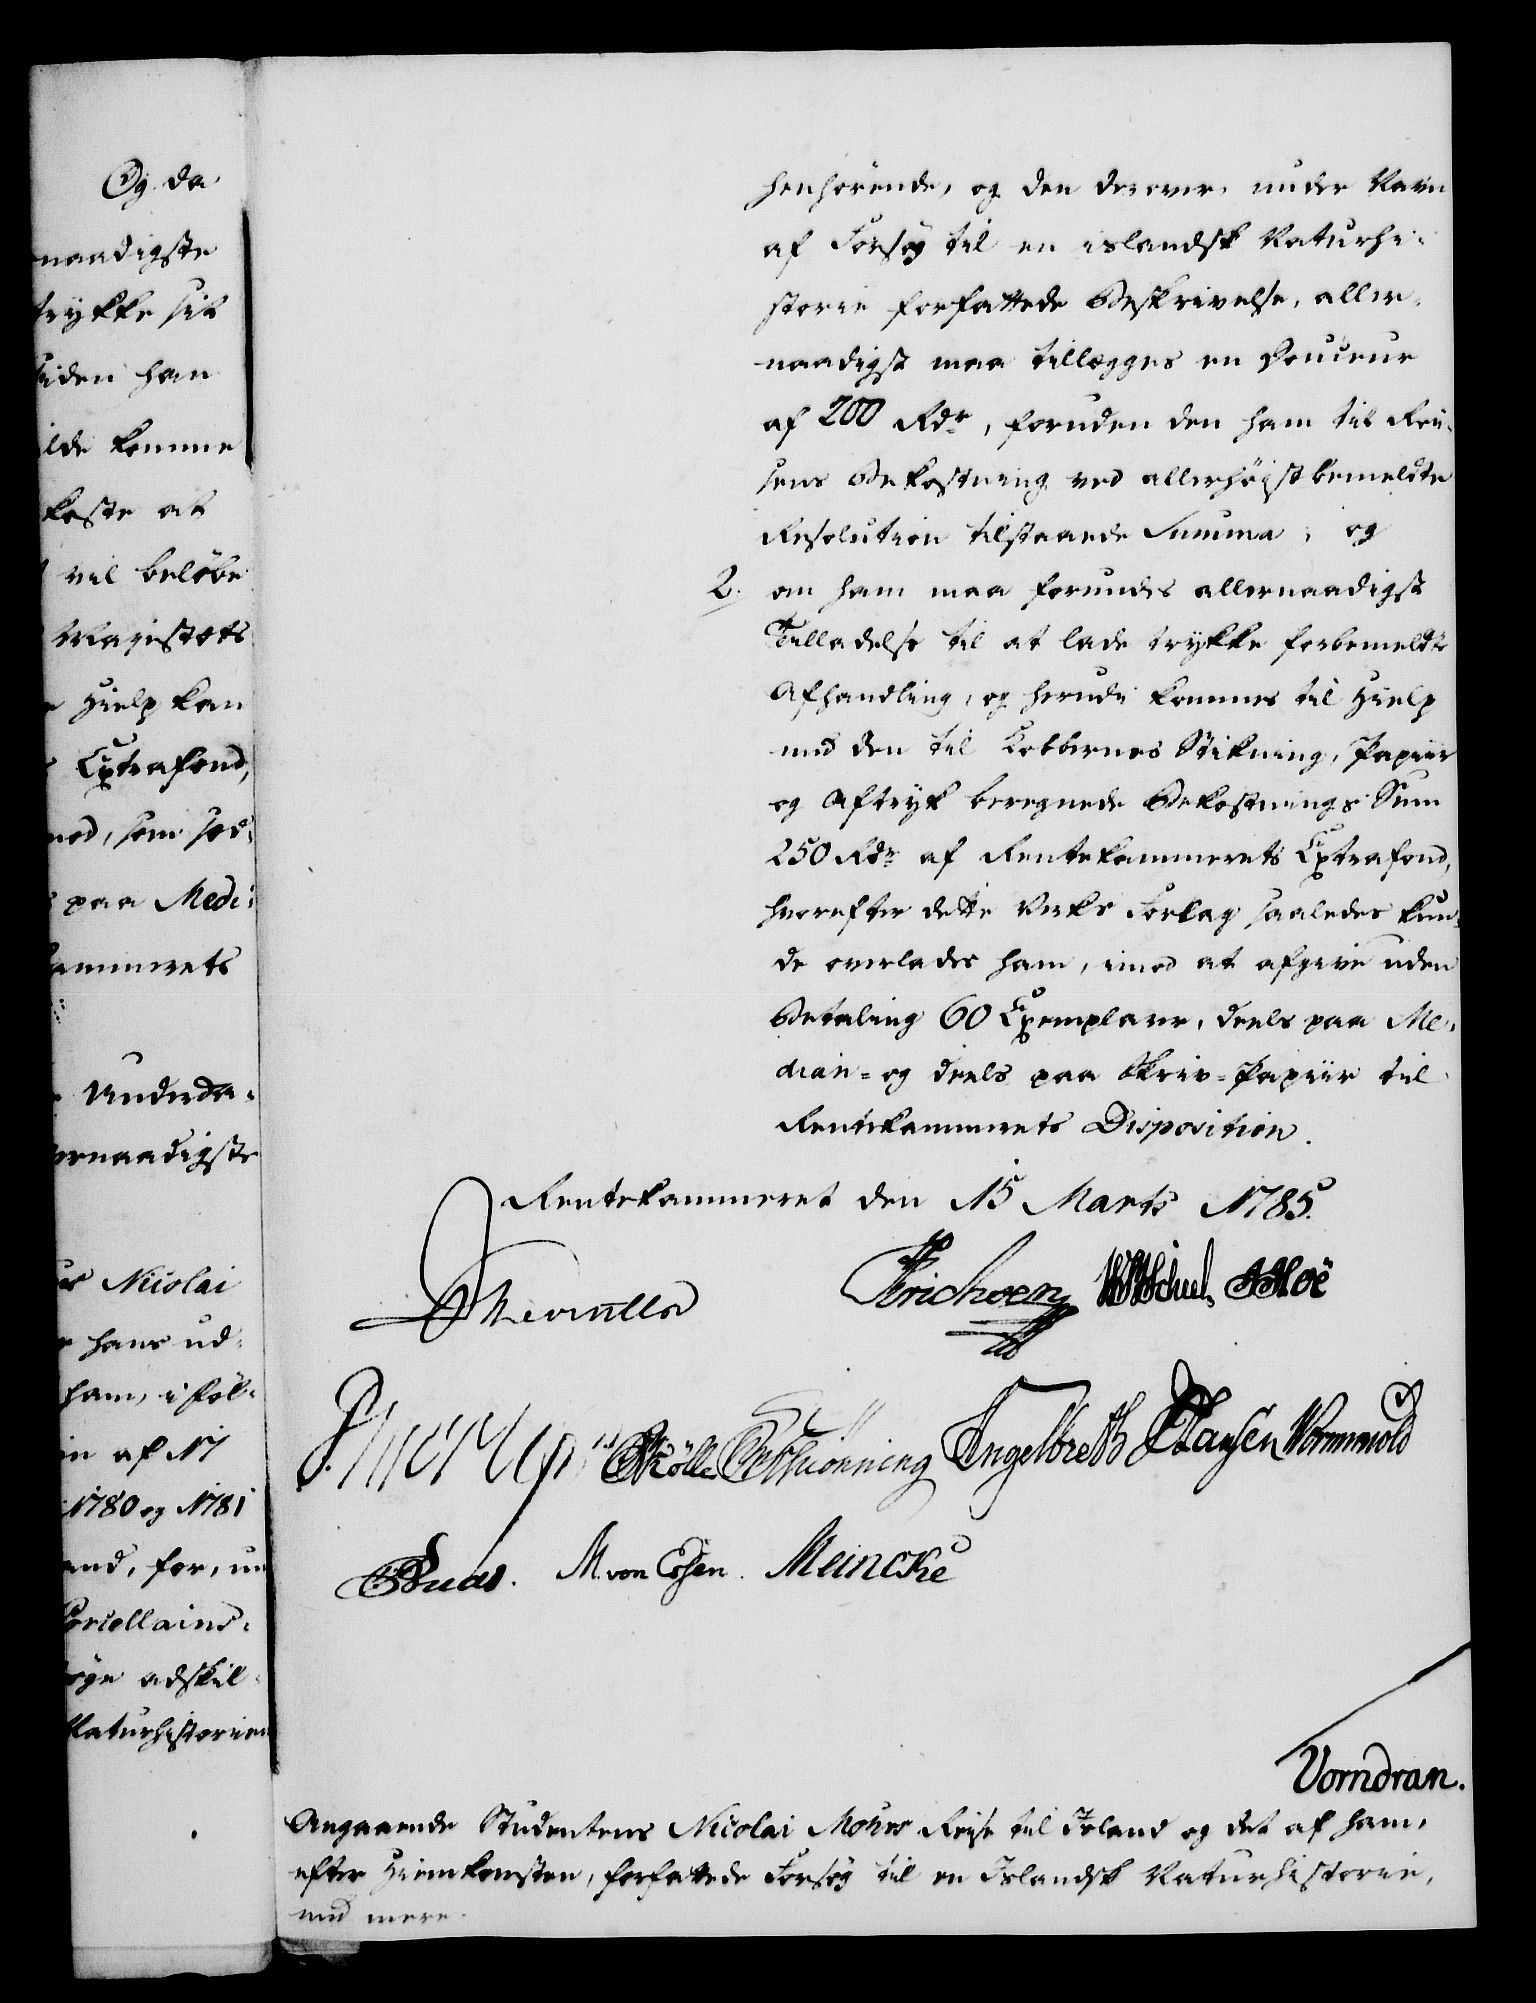 Og da
naadigste
trykke sit
siden han
ilde komme
koste at
vil beløbe
Majestæts
Hielp kan
Extrafond,
med, som sær-
paa Medi-
ammerets
Underda-
ernaadigste
Nicolai
hans ud-
ham, i føl-
in af 17
1780 og 1781
and, for, un
Porcellains-
øge adskil-
Naturhistorien
henhørende, og den derover, under Navn
af Forsøg til en islandsk Naturhi-
storie forfattede Beskrivelse, aller-
naadigst maa tillægges en Douceur
af 200 Rdr, foruden den ham til Rei-
sens Bekostning ved allerhøistbemeldte
Resolution tilstaaede Summa; og
2. om ham maa forundes allernaadigst
Tilladelse til at lade trykke forbemeldte
Afhandling, og herudi kommes til Hielp
med den til Kobbernes Stikning, Papiir
og Aftryk beregnede Bekostnings Sum
250 Rdr af Rentekammerets Extrafond,
hvorefter dette Verks Forlag saaledes kun-
de overlades ham, imod at afgive uden
Betaling 60 Exemplarer, deels paa Me-
dian- og deels paa Skriv-Papiir til
Rentekammerets Disposition.
Rentekammeret den 15 Marts 1785.
Erichsen Scheel Hoë
Mölle Schiönning Engelbreth Hansen Wormwold
M. von Essen. Meincke
Vorndran.
Angaaende Studentens Nicolai Mohrs Reise til Island og det af ham,
efter Hiemkomsten, forfattede Forsøg til en Islandsk Naturhistorie,
med mere.